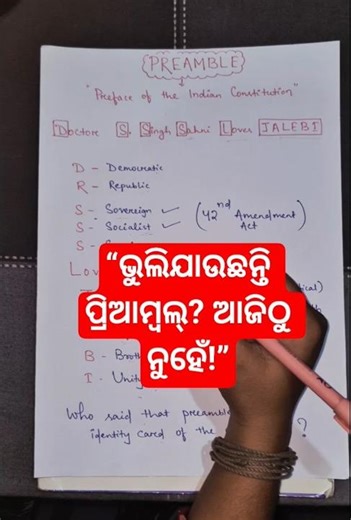 PREAMBLE
"Preface of the Indian Constitution"
Doctore S. Singh Sahni Loves JALEBI
D - Democratic
R - Republic
S - Sovereign ✓ (42nd Amendment
S - Socialist ✓ Act)
S -
“ଭୁଲିଯାଉଛନ୍ତି
ପ୍ରିଆମ୍ବଲ୍? ଆଜିଠୁ
ନୁହେଁ!”
B -
I - Unity
Who said that
identity cared of the ?